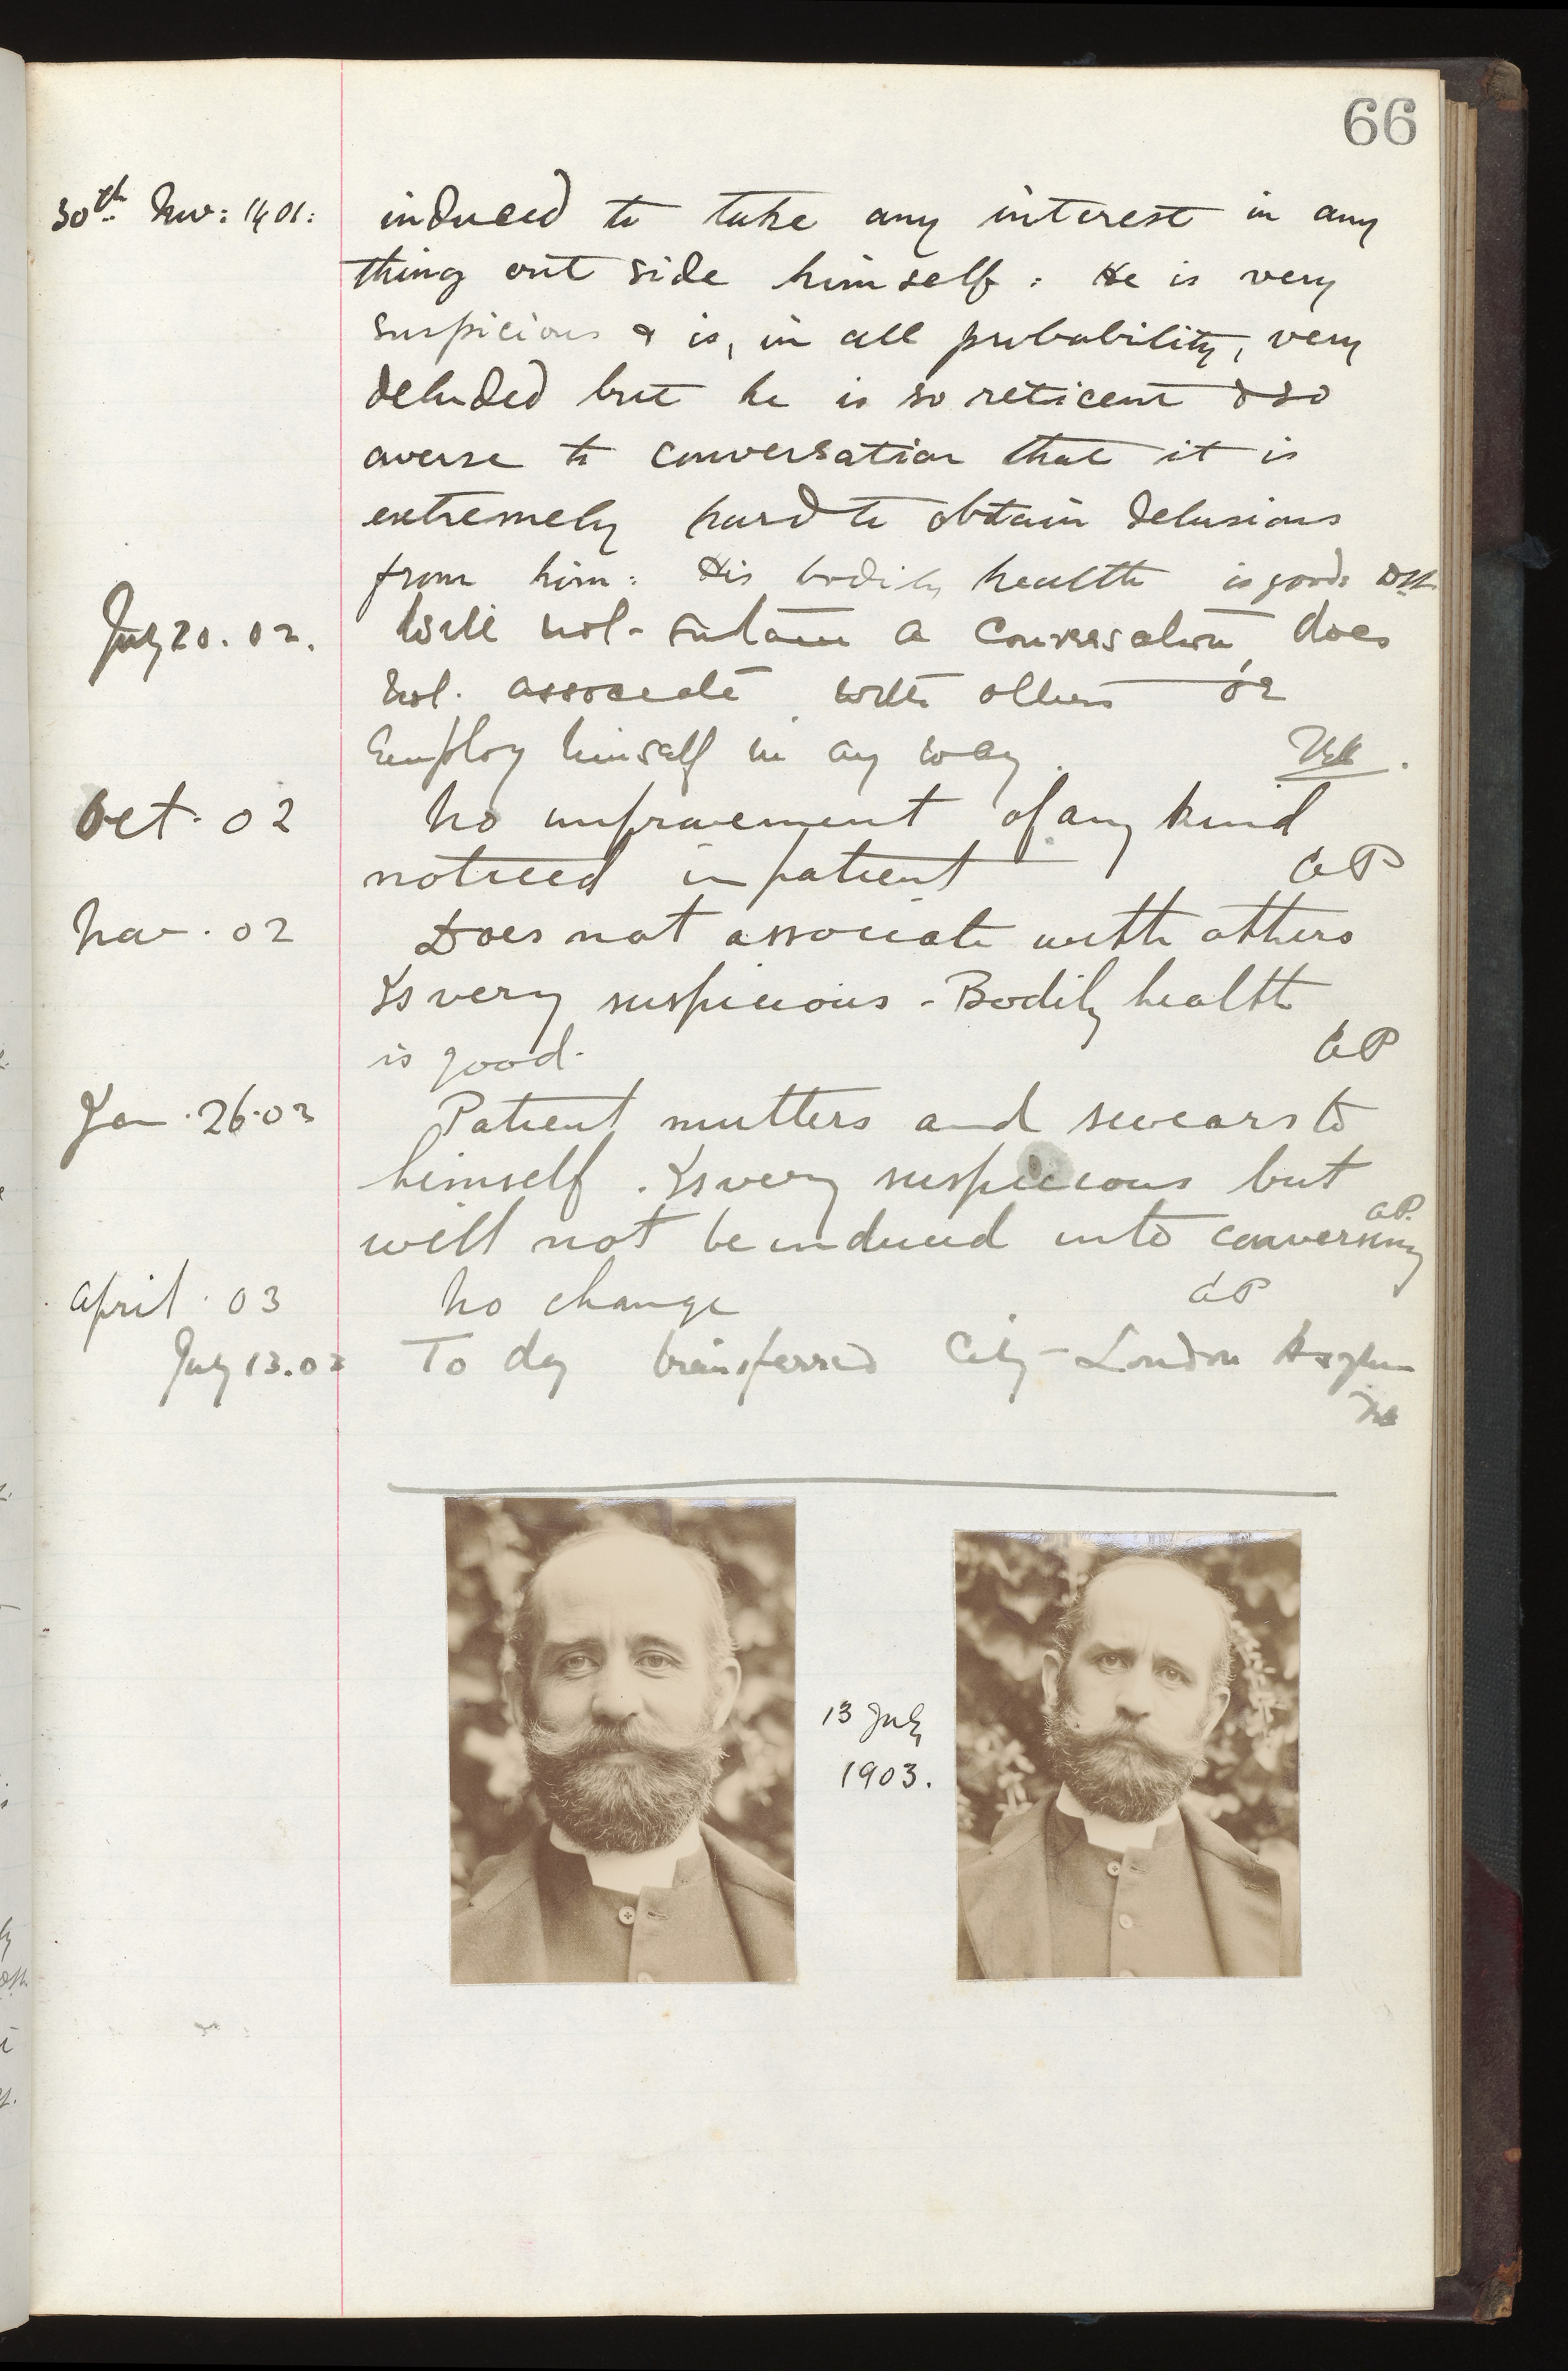 66
30th Nov: 1901: induced to take any interest in any
thing out side himself: He is very
suspicious & is, in all probability, very
deluded but he is so reticent & so
averse to conversation that it is
extremely hard to obtain delusions
from him: His bodily health is good:
July 20. 02. Will not sustain a conversation, does
not associate with others or
Employ himself in any way.
Oct. 02 No improvement of any kind
noticed in patient GP
Nov. 02 Does not associate with others
Is very suspicious - Bodily health
is good. GP
Jan. 26. 03 Patient mutters and swears to
himself. Is very suspicious but
will not be induced into conversing GP.
April. 03 No change GP
July 13. 03 To day transferred City London Asylum
13 July
1903.